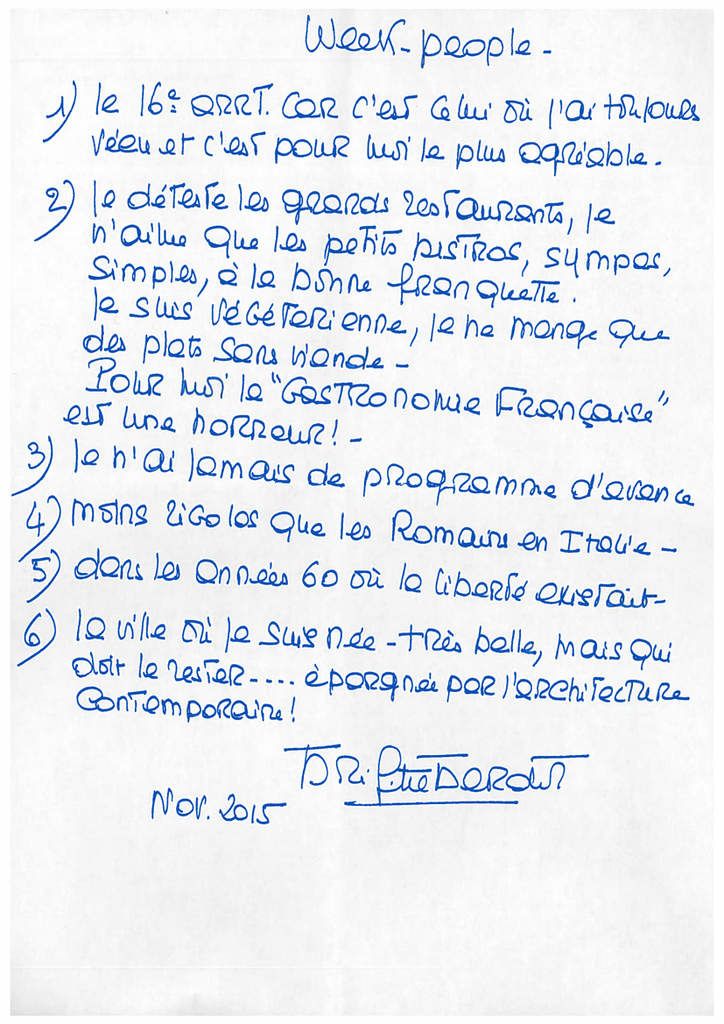 Week-people-
1) le 16e ARRT. CAR c'est celui où j'ai toujours
vécu et c'est pour moi le plus agréable.
2) Je déteste les grands restaurants, je
n'aime que les petits bistros, sympas,
simples, à la bonne franquette.
Je suis végéterienne, je ne mange que
des plats sans viande-
Pour moi la "Gastronomie Française"
est une horreur!-
3) Je n'ai jamais de programme d'avance
4) moins rigolos que les Romains en Italie-
5) dans les années 60 où la liberté existait-
6) la ville où je suis née-très belle, mais qui
doit le rester-.... épargnée par l'architecture
contemporaine!
Brigitte Bardot
Nov. 2015